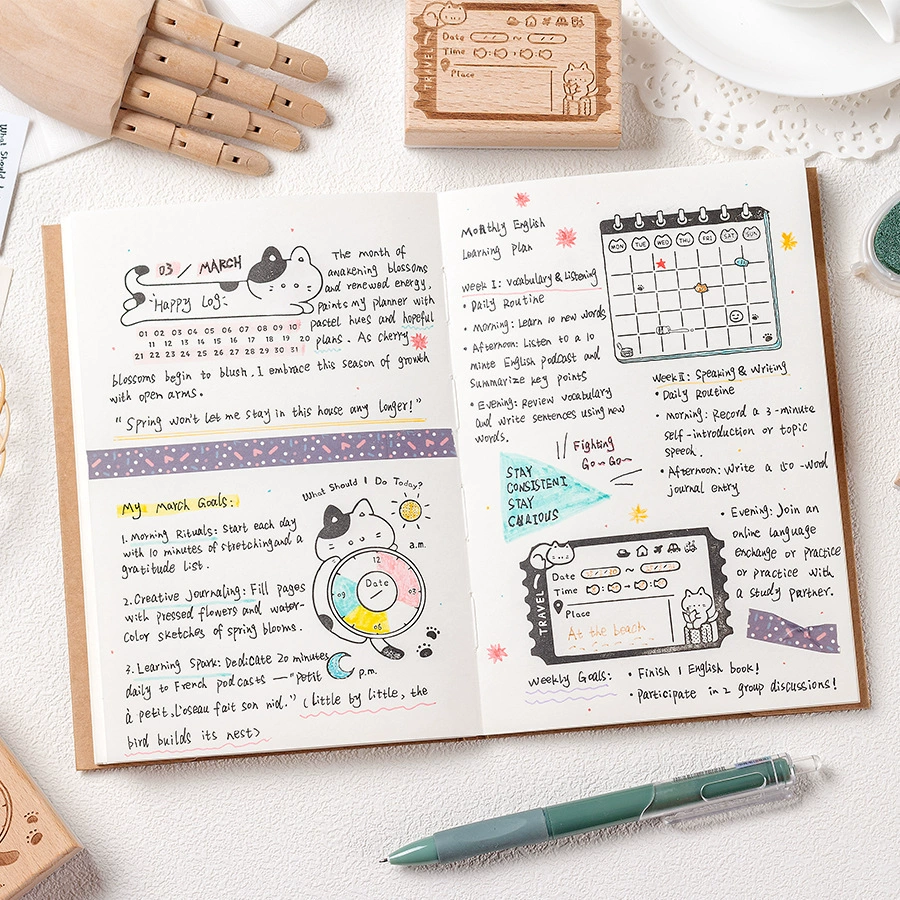 TRAVEL
Date ~
Time
Place
What Should I
03 / MARCH
Happy Log
01 02 03 04 05 06 07 08 09 10
11 12 13 14 15 16 17 18 19 20
21 22 23 24 25 26 27 28 29 30 31
The month of
awakening blossoms
and renewed energy,
paints my planner with
pastel hues and hopeful
plans. As cherry
blossoms begin to blush, I embrace this season of growth
with open arms.
"Spring won't let me stay in this house any longer!"
My March Goals:
1. Morning Rituals: Start each day
with 10 minutes of stretching and a
gratitude list.
2. Creative Journaling: Fill pages
with pressed flowers and water-
color sketches of spring blooms.
3. Learning Spark: Dedicate 20 minutes
daily to French podcasts — "Petit
à petit, L'oseau fait son nid." (little by little, the
bird builds its nest>
What Should I Do Today?
a.m.
12
Date
09
03
06
p.m.
Monthly English
Learning plan
Week I: Vocabulary & Listening
• Daily Routine
• Morning: Learn 10 new words
• Afternoon: Listen to a 10
minte English podcast and
Summarize key points
• Evening: Review vocabulary
and write sentences using new
words.
MON TUE WED THU FRI SAT SUN
Week II: Speaking & Writing
• Daily Routine
• Morning: Record a 3-minute
self-introduction or topic
speech.
• Afternoon: Write a 150-word
journal entry
• Evening: Join an
online language
exchange or practice
or practice with
a study partner.
Fighting
Go~Go~
STAY
CONSISTENT
STAY
CURIOUS
TRAVEL
Date ~
Time
Place
At the beach
Weekly Goals:
• Finish 1 English book!
• Participate in 2 group discussions!